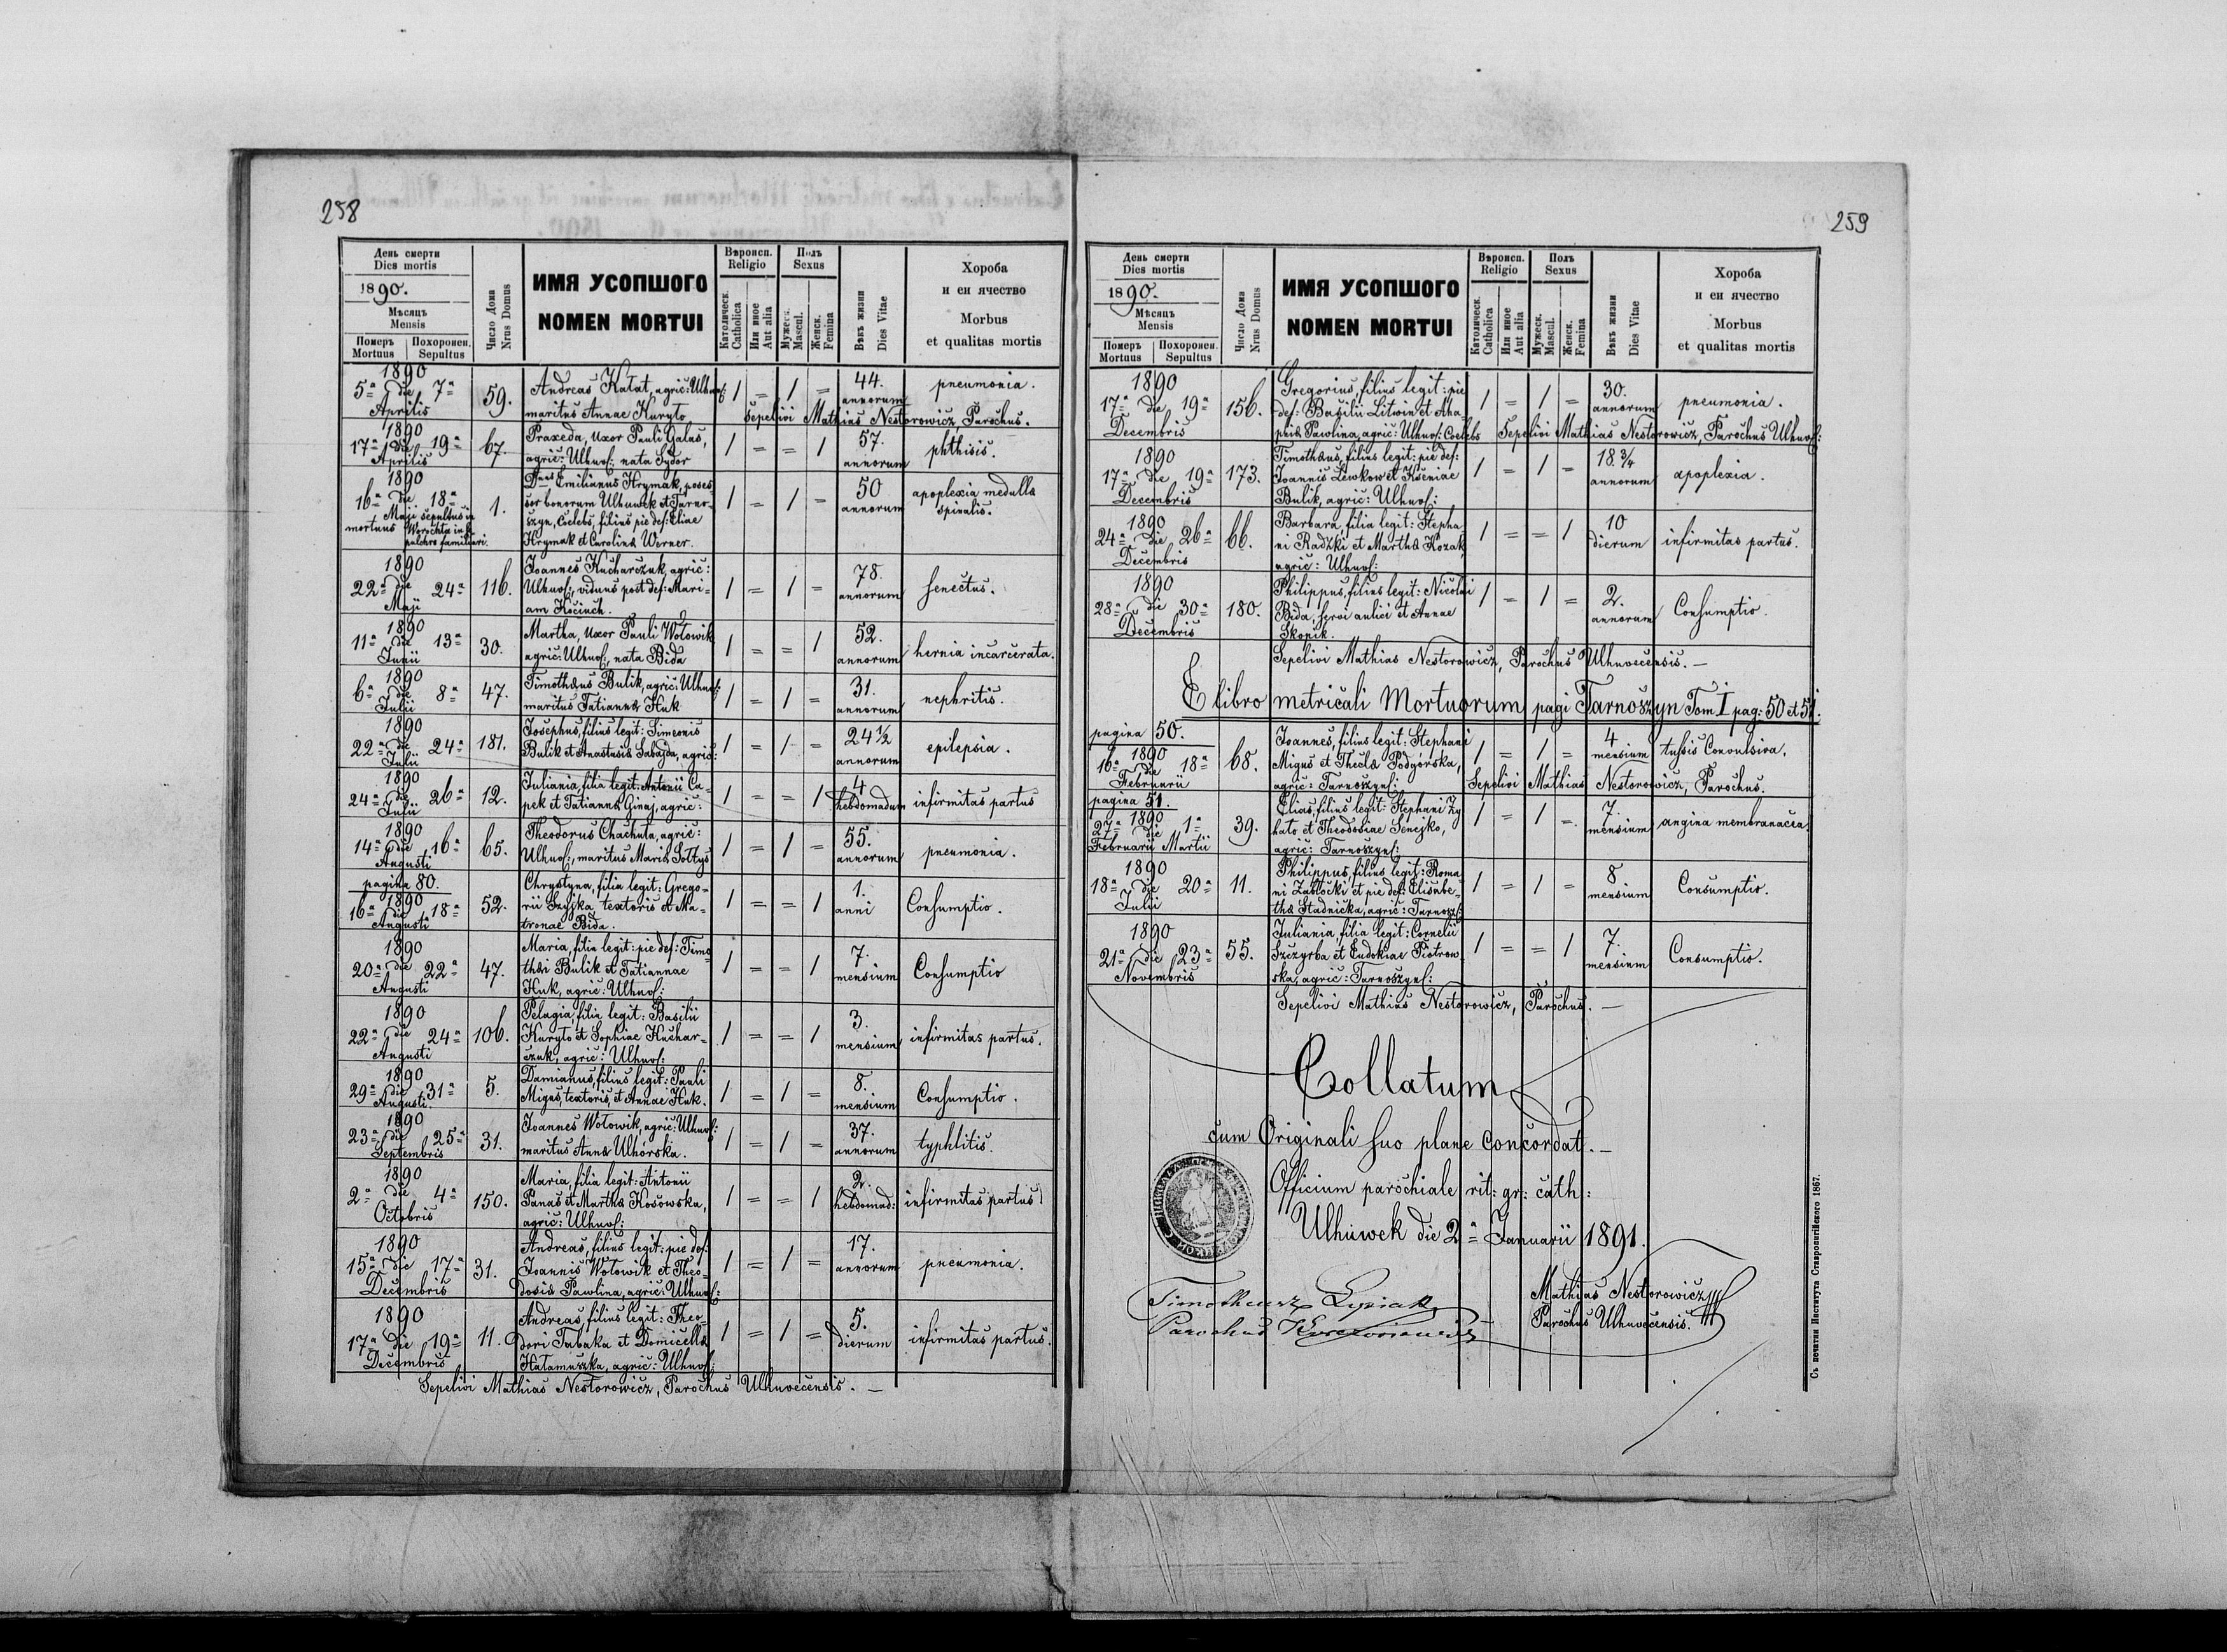 258
День смерти
Dies mortis
1890.
Мѣсяць
Mensis
Померъ
Mortuus
Похоронен.
Sepultus
Число Дома
Nrus Domus
ИМЯ УСОПШОГО
NOMEN MORTUI
Вѣроисп.
Religio
Католическ.
Catholica
Или иное
Aut alia
Полъ
Sexus
Мужеск.
Mascul.
Женск.
Femina
Вѣкъ жизни
Dies Vitae
Хороба
и еи ячество
Morbus
et qualitas mortis
1890
5ª die 7ª
Aprilis
59.
Andreas Hałat, agric: Ulhuv:
maritus Annae Kuryło
1 = 1 =
44.
annorum
pneumonia.
Sepelivi Mathias Nestorowicz, Parochus.
1890
17ª die 19ª
Aprilis
67.
Praxeda, uxor Pauli Galas,
agric: Ulhuv: nata Sydor
1 = = 1
57.
annorum
phthisis.
1890
16ª die 18ª
Maji sepultus in
mortuus Worochta in se-
pulchro familiari.
1.
Dnus Emilianus Hrymak, poses-
sor bonorum Ulhuwek et Tarno-
szyn, Coelebs, filius pie def: Eliae
Hrymak et Carolinæ Werner.
1 = 1 =
50
annorum
apoplexia medullæ
spinalis.
1890
22ª die 24ª
Maji
116.
Joannes Kucharczuk, agric:
Ulhuv:, viduus post def: Mari-
am Kociuch.
1 = 1 =
78.
annorum
senectus.
1890
11ª die 13ª
Junii
30.
Martha, uxor Pauli Wołowik
agric: Ulhuv:, nata Bida
1 = = 1
52.
annorum
hernia incarcerata.
1890
6ª die 8ª
Julii
47.
Timothæus Bulik, agric: Ulhuv:
maritus Tatiannæ Huk
1 = 1 =
31.
annorum
nephritis.
1890
22ª die 24ª
Julii
181.
Josephus, filius legit: Simeonis
Bulik et Anastasiæ Sabajda, agric:
1 = 1 =
24 1/2
annorum
epilepsia.
1890
24ª die 26ª
Julii
12.
Juliania, filia legit: Antonii Ca-
pek et Tatiannæ Ginaj, agric:
1 = = 1
4
hebdomadum
infirmitas partus
1890
14ª die 16ª
Augusti
65.
Theodorus Chachuła, agric:
Ulhuv:, maritus Mariæ Sołtys
1 = 1 =
55.
annorum
pneumonia.
pagina 80.
1890
16ª die 18ª
Augusti
52.
Chrystyna, filia legit: Grego-
rii Szyjka textoris et Ma-
tronae Bida.
1 = = 1
1.
anni
Consumptio.
1890
20ª die 22ª
Augusti
47.
Maria, filia legit: pie def: Timo-
thæi Bulik et Tatiannae
Huk, agric: Ulhuv:
1 = = 1
7.
mensium
Consumptio
1890
22ª die 24ª
Augusti
106.
Pelagia, filia legit: Basilii
Kuryło et Sophiae Kuchar-
czuk, agric: Ulhuv:
1 = = 1
3.
mensium
infirmitas partus.
1890
29ª die 31ª
Augusti.
5.
Damianus, filius legit: Pauli
Migus, textoris, et Annae Huk.
1 = 1 =
8.
mensium
Consumptio.
1890
23ª die 25ª
Septembris
31.
Joannes Wołowik, agric: Ulhuv:
maritus Annæ Uhorska.
1 = 1 =
37.
annorum
typhlitis.
1890
2ª die 4ª
Octobris
150.
Maria, filia legit: Antonii
Panas et Marthæ Kosowska,
agric: Ulhuv:
1 = = 1
2.
hebdomad:
infirmitas partus
1890
15ª die 17ª
Decembris
31.
Andreas, filius legit: pie def:
Joannis Wołowik et Theo-
dosiæ Pawlina, agric: Ulhuv:
1 = 1 =
17.
annorum
pneumonia.
1890
17ª die 19ª
Decembris
11.
Andreas, filius legit: Theo-
dori Tabaka et Domicellæ
Hałamuszka, agric: Ulhuv:
1 = 1 =
5.
dierum
infirmitas partus.
Sepelivi Mathias Nestorowicz, Parochus Ulhuvecensis. —
259
День смерти
Dies mortis
1890.
Мѣсяць
Mensis
Померъ
Mortuus
Похоронен.
Sepultus
Число Дома
Nrus Domus
ИМЯ УСОПШОГО
NOMEN MORTUI
Вѣроисп.
Religio
Католическ.
Catholica
Или иное
Aut alia
Полъ
Sexus
Мужеск.
Mascul.
Женск.
Femina
Вѣкъ жизни
Dies Vitae
Хороба
и еи ячество
Morbus
et qualitas mortis
1890
17ª die 19ª
Decembris
156.
Gregorius, filius legit: pie
def: Basilii Litwin et Aha-
phiæ Pawlina, agric: Ulhuv: Coelebs
1 = 1 =
30.
annorum
pneumonia.
Sepelivi Mathias Nestorowicz, Parochus Ulhuv:
1890
17ª die 19ª
Decembris
173.
Timothæus, filius legit: pie def:
Joannis Lewkow et Kseniae
Bulik, agric: Ulhuv:
1 = 1 =
18. 3/4
annorum
apoplexia.
1890
24ª die 26ª
Decembris
66.
Barbara, filia legit: Stepha
ni Radzki et Marthæ Kozak
agric: Ulhuv:
1 = = 1
10
dierum
infirmitas partus.
1890
28ª die 30ª
Decembris
180.
Philippus, filius legit: Nicolai
Bida, servi aulici et Annae
Skopik.
1 = 1 =
2.
annorum
Consumptio.
Sepelivi Mathias Nestorowicz, Parochus Ulhuvecensis. —
E libro metricali Mortuorum pagi Tarnoszyn Tom I pag: 50 et 51.
pagina 50.
1890
16ª die 18ª
Februarii
68.
Joannes, filius legit: Stephani
Migus et Theclæ Podgorska,
agric: Tarnoszyn:
1 = 1 =
4
mensium
tussis Convulsiva.
Sepelivi Mathias Nestorowicz, Parochus.
pagina 51.
1890
27ª die 1ª
Februarii Martii
39.
Elias, filius legit: Stephani Zy
hato et Theodosiae Senejko,
agric: Tarnoszyn:
1 = 1 =
7.
mensium
angina membranacea.
1890
18ª die 20ª
Julii
11.
Philippus, filius legit: Roma-
ni Zabłocki et pie def: Elisabe-
thæ Stadnicka, agric: Tarnosz:
1 = 1 =
8
mensium
Consumptio.
1890
21ª die 23ª
Novembris
55.
Juliania, filia legit: Cornelii
Szczyrba et Eudokiae Piotrow-
ska, agric: Tarnoszyn:
1 = = 1
7.
mensium
Consumptio.
Sepelivi Mathias Nestorowicz, Parochus. —
Collatum
cum Originali suo plane Concordat. —
Officium parochiale rit: gr: cath:
Ulhuwek die 2ª Januarii 1891.
Mathias Nestorowicz
Parochus Ulhuvecensis.
Parochus
Съ печатни Института Ставропигійского 1867.